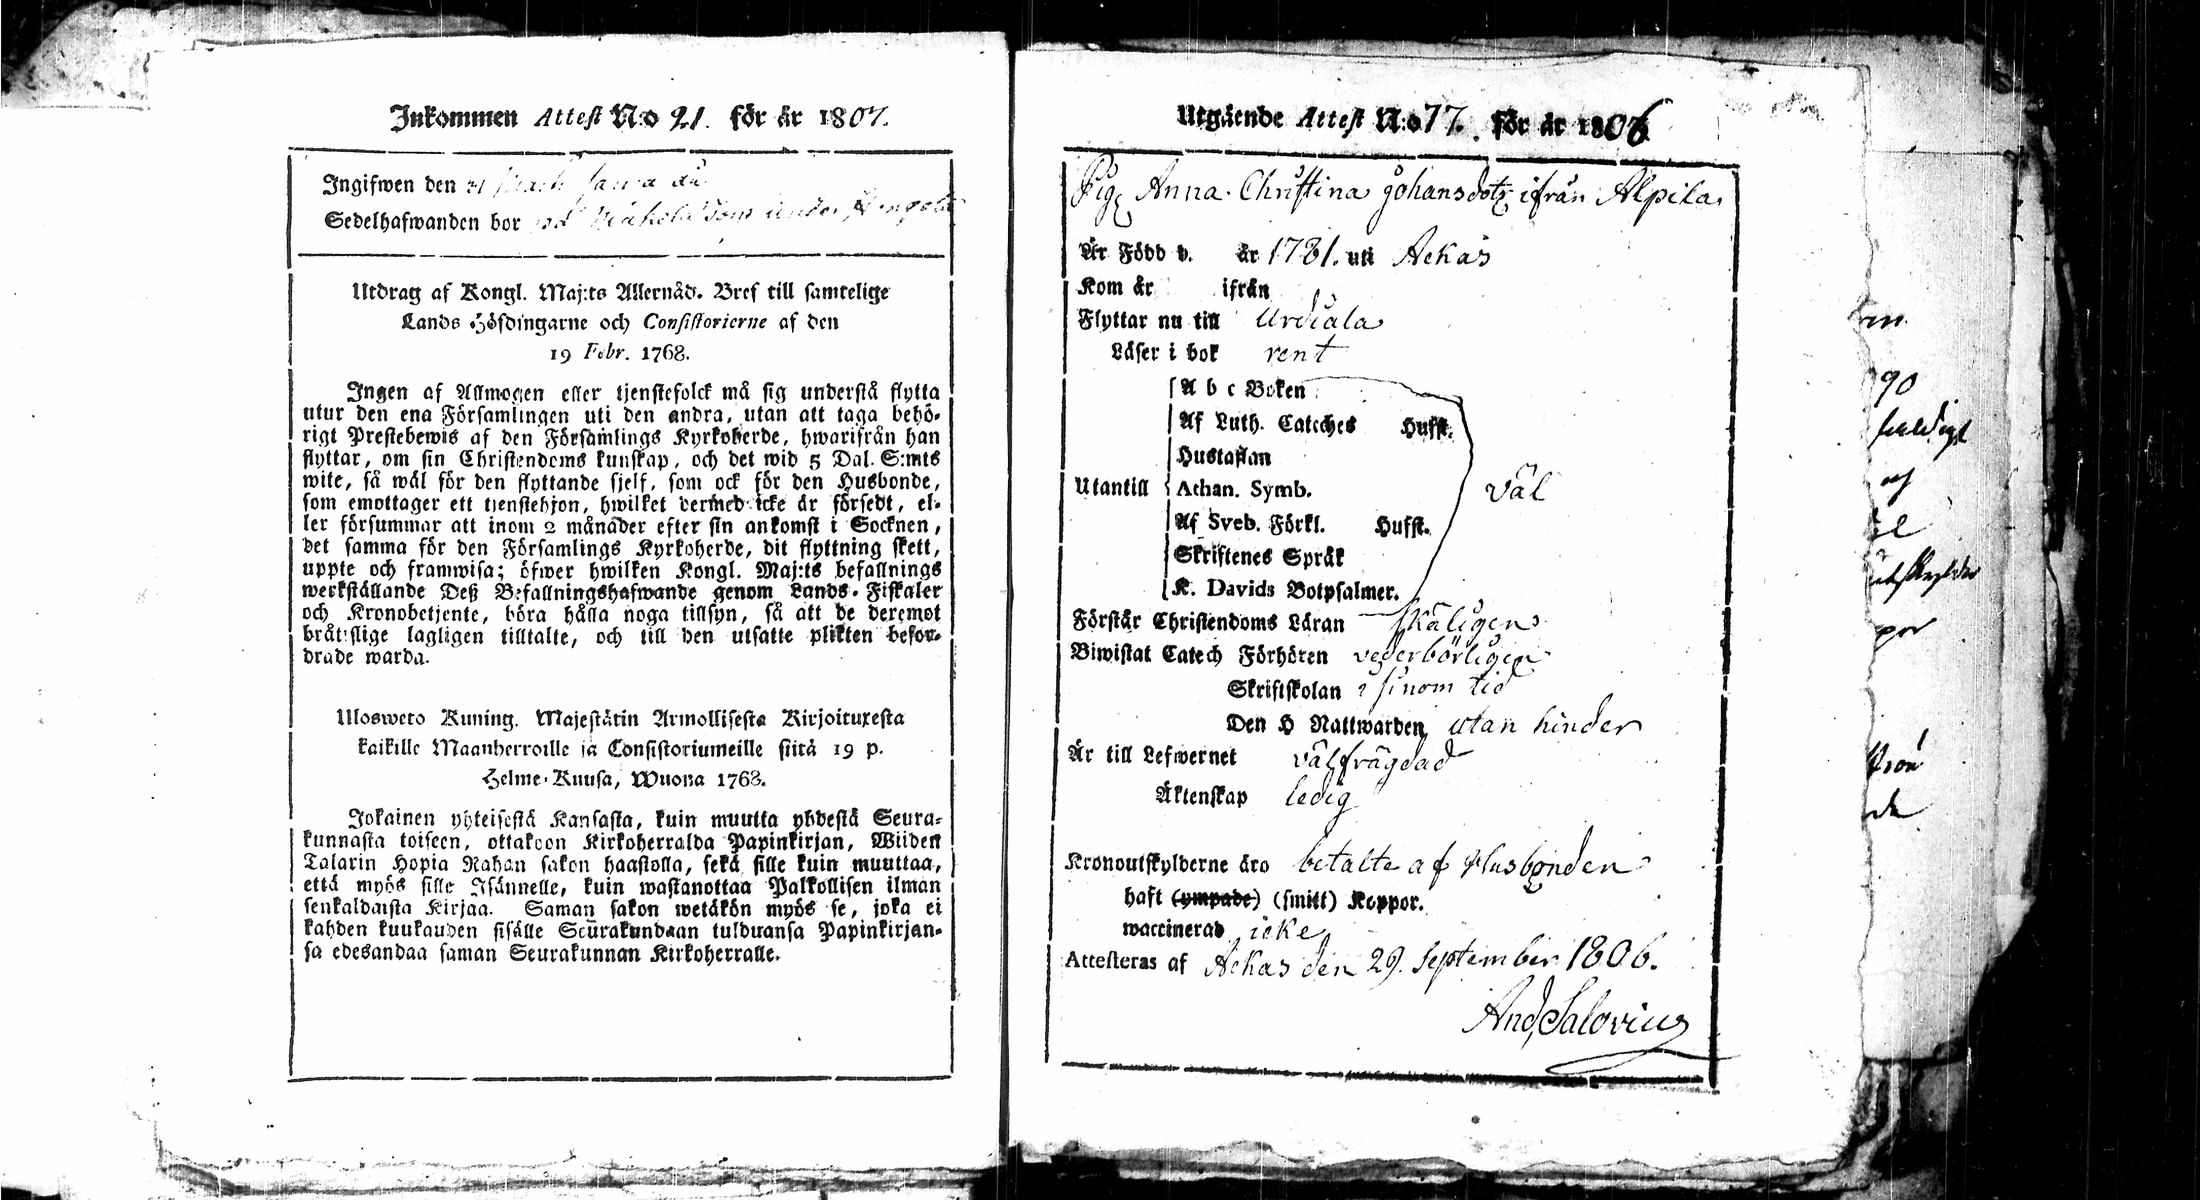 Inkommen Attest N:o 21. för år 1807.
Ingifwen den 31 samma år
Sedelhafwanden bor under
Utdrag af Kongl. Maj:ts Allernåd. Bref till samtelige
Lands Höfdingarne och Consistorierne af den
19 Febr. 1768.
Ingen af Allmogen eller tjenstefolck må sig understå flytta
utur den ena Församlingen uti den andra, utan att taga behö-
rigt Prestebewis af den Församlings Kyrkoherde, hwarifrån han
flyttar, om sin Christendoms kunskap, och det wid 5 Dal. S:mts
wite, så wäl för den flyttande sjelf, som ock för den Husbonde,
som emottager ett tjenstehjon, hwilket dermed icke är försedt, el-
ler försummar att inom 2 månader efter sin ankomst i Socknen,
det samma för den Församlings Kyrkoherde, dit flyttning skett,
uppte och framwisa; öfwer hwilken Kongl. Maj:ts befallnings
werkställande Deß Befallningshafwande genom Lands-Fiskaler
och Kronobetjente, böra hålla noga tillsyn, så att de deremot
bråtslige lagligen tilltalte, och till den utsatte plikten befor-
drade warda.
Ulosweto Kuning. Majestätin Armollisesta Kirjoituxesta
kaikille Maanherroille ja Consistoriumeille siitä 19 p.
Helme-Kuusa, Wuona 1768.
Jokainen yhteisestä Kansasta, kuin muutta yhdestä Seura-
kunnasta toiseen, ottakoon Kirkoherralda Papinkirjan, Wiiden
Talarin Hopia Rahan sakon haastolla, sekä sille kuin muuttaa,
että myös sille Isännelle, kuin wastanottaa Palkollisen ilman
senkaldaista Kirjaa. Saman sakon wetäkön myös se, joka ei
kahden kuukauden sisälle Seurakundaan tulduansa Papinkirjan-
sa edesandaa saman Seurakunnan Kirkoherralle.
Utgående Attest N:o 77. för år 1806
Pig. Anna Christina Johansdotr ifrån Alpila.
Är Född d. år 1781. uti Ackas
Kom år ifrån
Flyttar nu till Urdiala
Läser i bok rent
A b c Boken
Af Luth. Catches Husst.
Hustaflan
Utantill Athan. Symb. väl
Af Sveb. Förkl. Husst.
Skriftenes Språk
K. Davids Botpsalmer.
Förstår Christendoms Läran skäligen
Biwistat Catech Förhören vederbörligen
Skriftskolan i sinom tid
Den H Nattwarden utan hinder
Är till Lefwernet välfrägdad
Äktenskap ledig
Kronoutskylderne äro betalte af Husbonden
haft (ympade) (smitt) Koppor.
waccinerad icke
Attesteras af Ackas den 29. September 1806.
And. Salovius
90